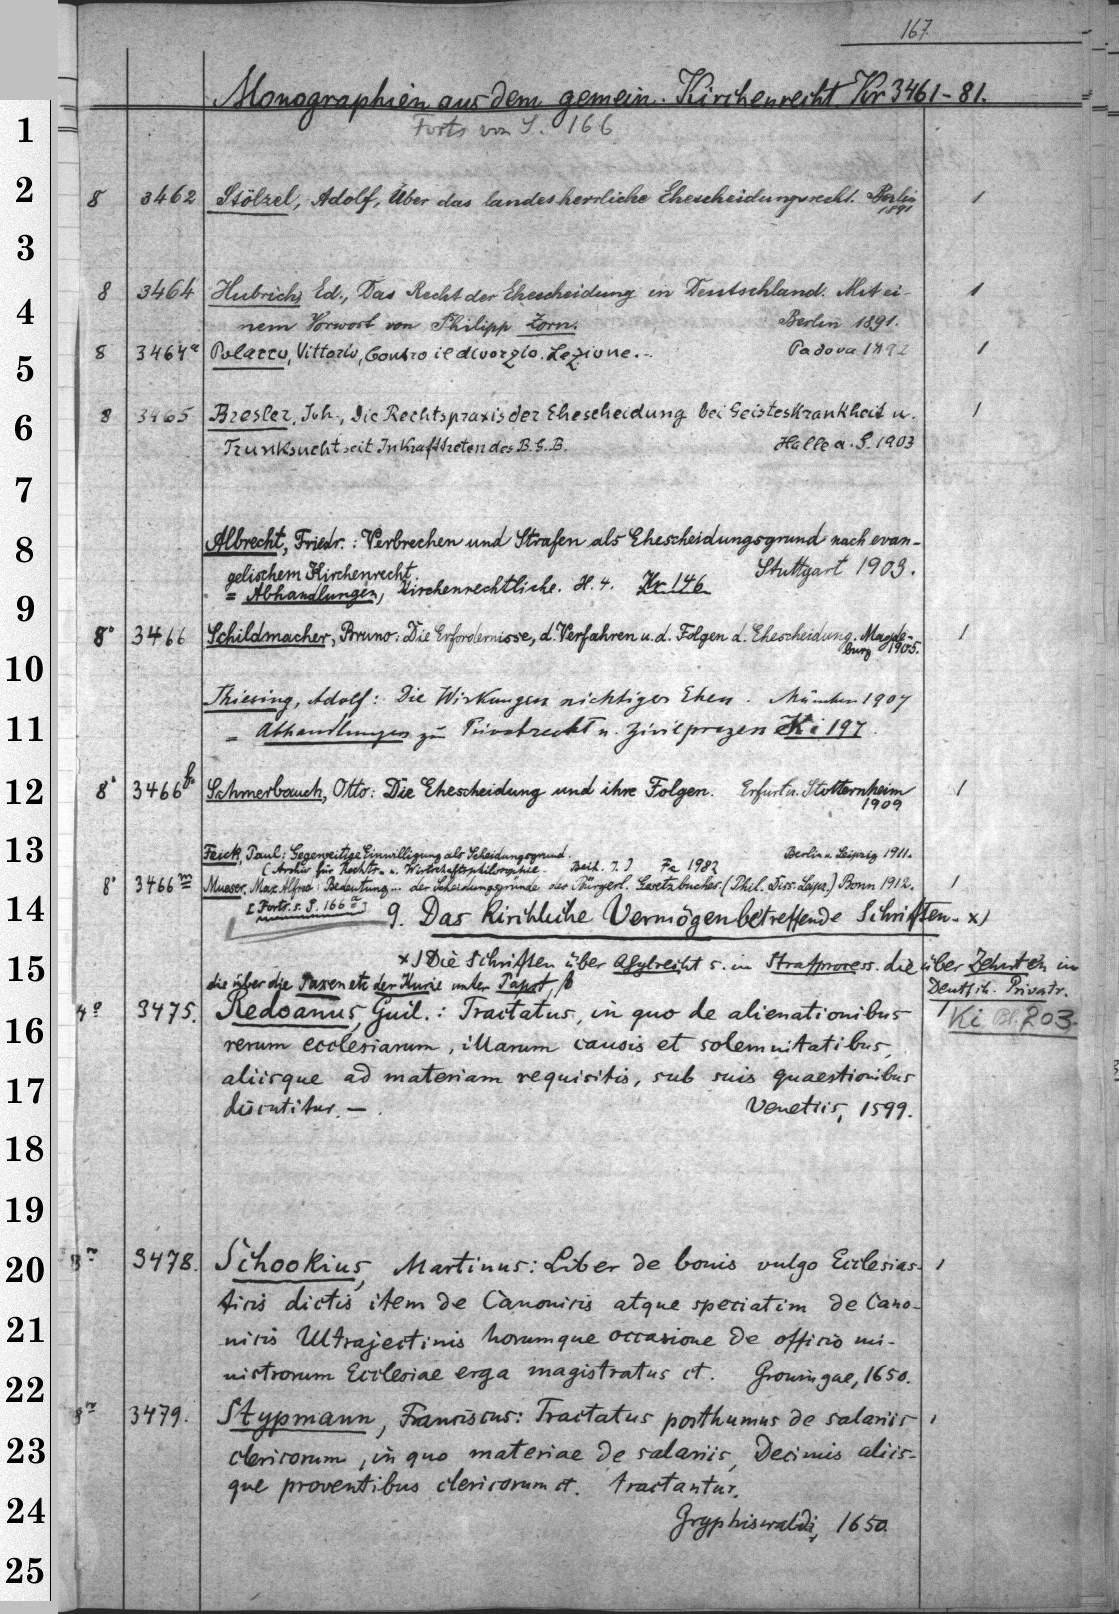 167
Monographien aus dem gemein. Kirchenrecht Kr 3461-81.
1
Forts von S. 166
2
8 3462 Stölzel, Adolf, Über das landesherrliche Ehescheidungsrecht. Berlin 1
1891
3
8 3464 Hubrich, Ed., Das Recht der Ehescheidung in Deutschland. Mit ei- 1
4
nem Vorwort von Philipp Zorn. Berlin 1891.
8 3464a Polacco, Vittorio, Contro il divorzio. Lezione. Padova 1892 1
5
8 3465 Bresler, Joh., Die Rechtspraxis der Ehescheidung bei Geisteskrankheit u. 1
6
Trunksucht seit Inkrafttreten des B.G.B. Halle a. S. 1903
7
Albrecht, Friedr.: Verbrechen und Strafen als Ehescheidungsgrund nach evan-
8
gelischem Kirchenrecht. Stuttgart 1903.
= Abhandlungen, Kirchenrechtliche. H. 4. Kr 146
9
8° 3466 Schildmacher, Bruno: Die Erfordernisse, d. Verfahren u. d. Folgen d. Ehescheidung. Magde- 1
burg 1905.
10
Thiesing, Adolf: Die Wirkungen nichtiger Ehen. München 1907
11
= Abhandlungen zum Privatrecht u. Zivilprozess Ki 197.
12
8° 3466f. Schmerbauch, Otto: Die Ehescheidung und ihre Folgen. Erfurt u. Stotternheim 1
1909
13
Feick, Paul: Gegenseitige Einwilligung als Scheidungsgrund. Berlin u. Leipzig 1911.
(Archiv für Rechts- u. Wirtschaftsphilosophie. Beih. 7.) Fa 1982
8° 3466m Mueser, Max Alfred: Bedeutung ... der Scheidungsgründe des Bürgerl. Gesetzbuches. (Phil. Diss. Leipz.) Bonn 1912. 1
[Forts. s. S. 166a]
14
9. Das kirchliche Vermögen betreffende Schriften. x)
15
x) Die Schriften über Asylrecht s. im Strafprocess. die über Zehnten im
die über die Taxen etc der Kurie unter Papst, Deutsch. Privatr.
4° 3475. Redoanus, Guil.: Tractatus, in quo de alienationibus 1 Ki Bl. 203.
16
rerum ecclesiarum, illarum causis et solemnitatibus,
aliisque ad materiam requisitis, sub suis quaestionibus
17
discutitur. — . Venetiis, 1599.
18
19
3478. Schookius, Martinus: Liber de bonis vulgo Ecclesias- 1
20
ticis dictis item de Canonicis atque speciatim de Cano-
21
nicis Ultrajectinis horumque occasione de officio mi-
22
nistrorum Ecclesiae erga magistratus ct. Groningae, 1650.
3479. Stypmann, Franciscus: Tractatus posthumus de salariis 1
23
clericorum, in quo materiae de salariis, Decimis aliis-
que proventibus clericorum ct. tractantur.
24
Gryphiswaldi, 1650
25